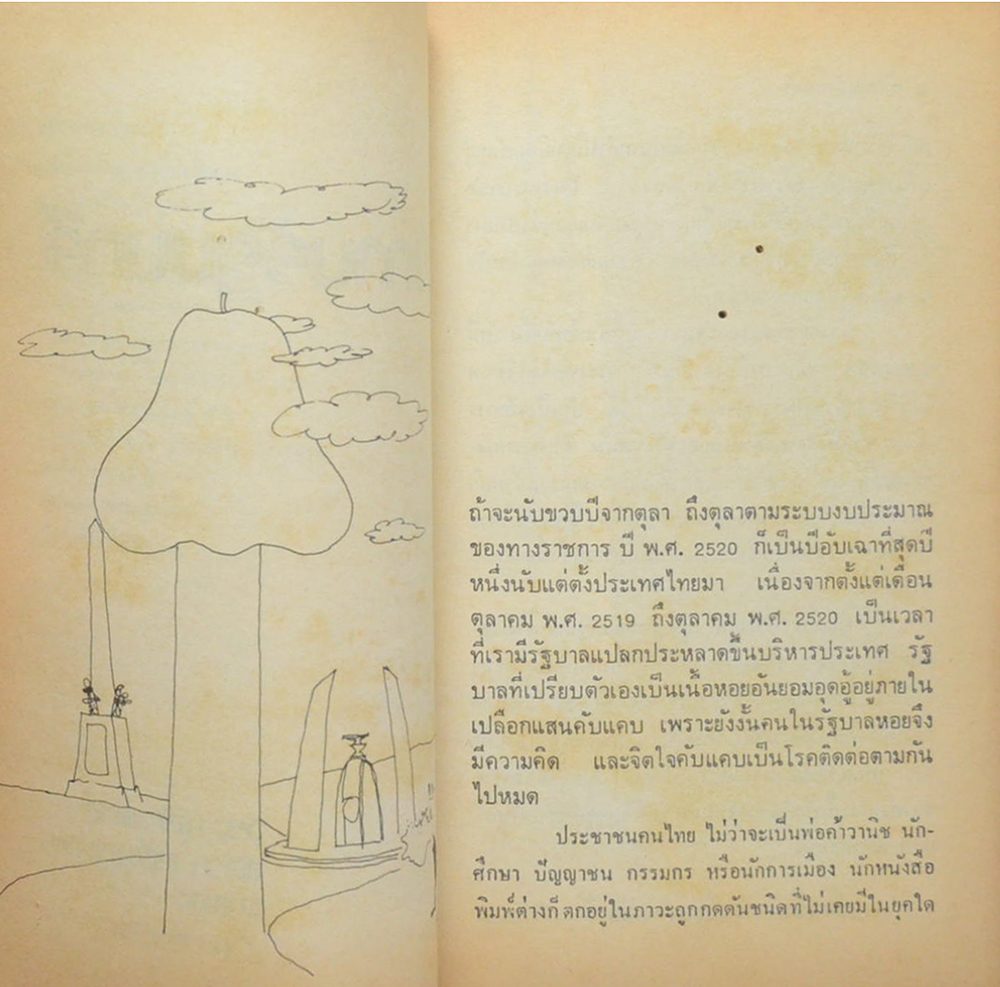 ถ้าจะนับขวบปีจากตุลา ถึงตุลาตามระบบงบประมาณ
ของทางราชการ ปี พ.ศ. 2520 ก็เป็นปีอับเฉาที่สุดปี
หนึ่งนับแต่ตั้งประเทศไทยมา เนื่องจากตั้งแต่เดือน
ตุลาคม พ.ศ. 2519 ถึงตุลาคม พ.ศ. 2520 เป็นเวลา
ที่เรามีรัฐบาลแปลกประหลาดขึ้นบริหารประเทศ รัฐ
บาลที่เปรียบตัวเองเป็นเนื้อหอยอันยอมอุดอู้อยู่ภายใน
เปลือกแสนคับแคบ เพราะยังงั้นคนในรัฐบาลหอยจึง
มีความคิด และจิตใจคับแคบเป็นโรคติดต่อตามกัน
ไปหมด
ประชาชนคนไทย ไม่ว่าจะเป็นพ่อค้าวานิช นัก-
ศึกษา ปัญญาชน กรรมกร หรือนักการเมือง นักหนังสือ
พิมพ์ต่างก็ตกอยู่ในภาวะถูกกดดันชนิดที่ไม่เคยมีในยุคใด